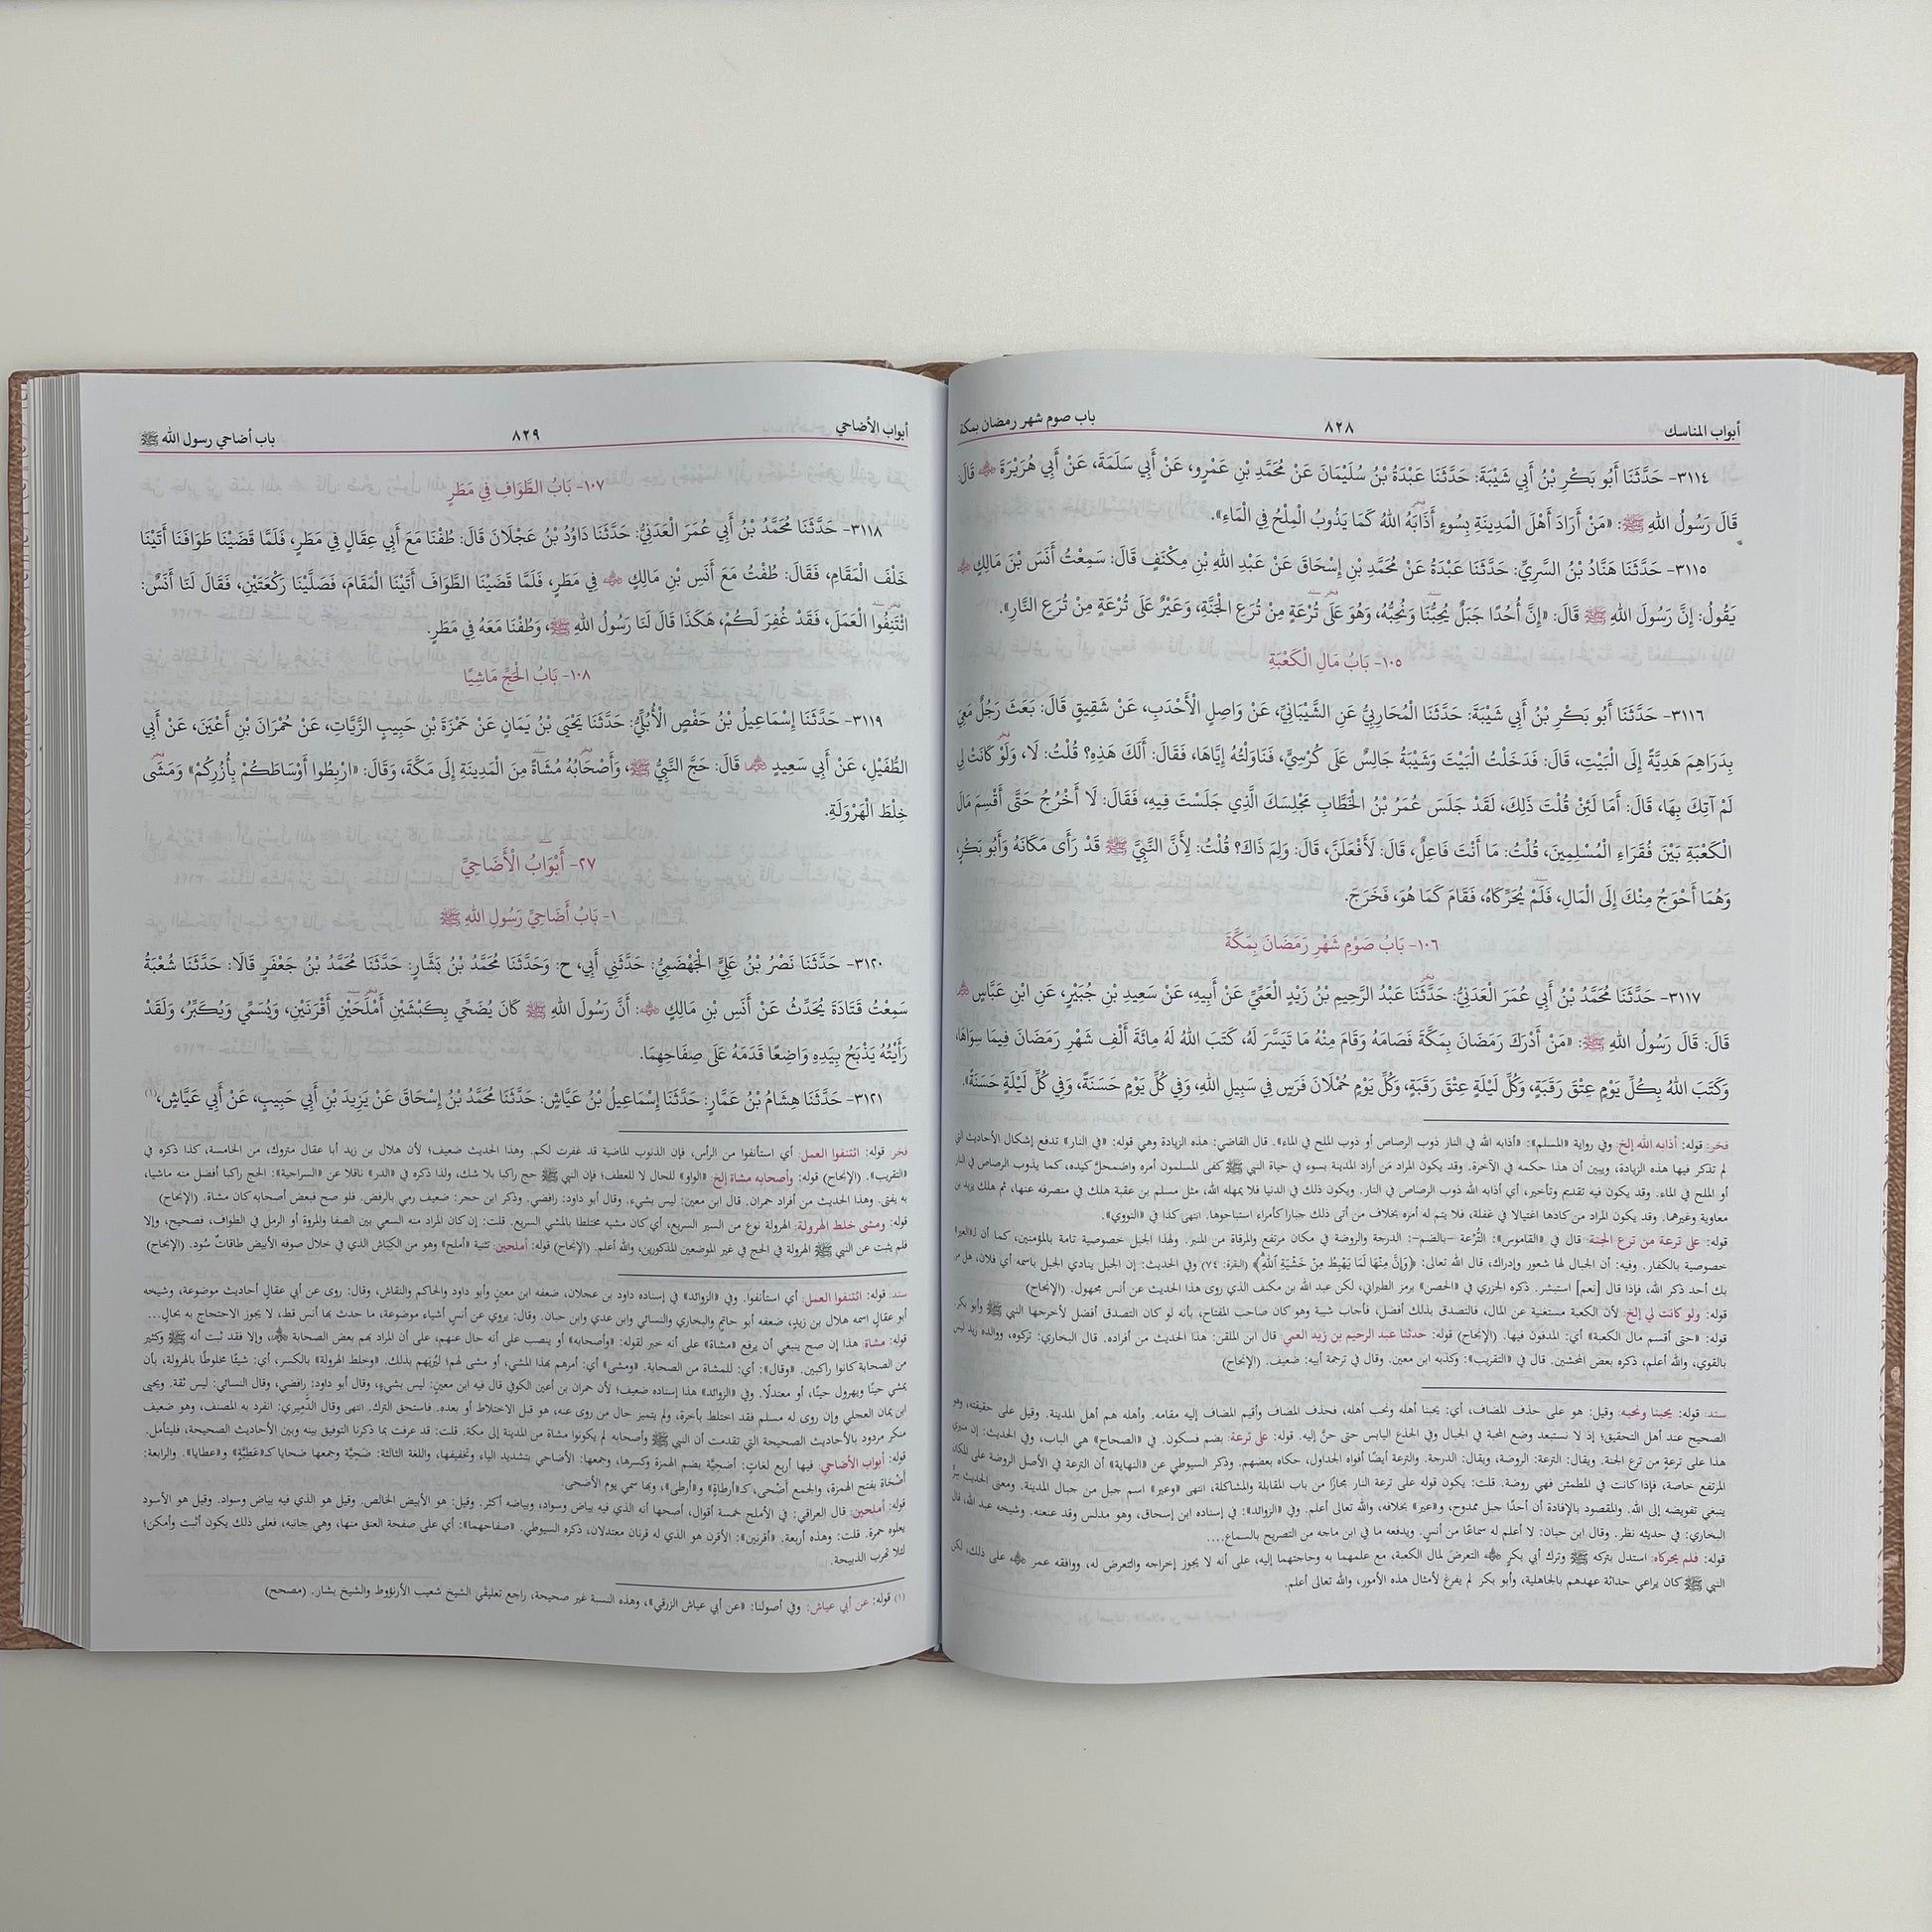 أبواب المناسك ٨٢٨ باب صوم شهر رمضان بمكة
٣١١٤- حَدَّثَنَا أَبُو بَكْرِ بْنُ أَبِي شَيْبَةَ: حَدَّثَنَا عَبْدَةُ بْنُ سُلَيْمَانَ عَنْ مُحَمَّدِ بْنِ عَمْرٍو، عَنْ أَبِي سَلَمَةَ، عَنْ أَبِي هُرَيْرَةَ ﷺ قَالَ:
قَالَ رَسُولُ اللهِ ﷺ: «مَنْ أَرَادَ أَهْلَ الْمَدِينَةِ بِسُوءٍ أَذَابَهُ اللهُ كَمَا يَذُوبُ الْمِلْحُ فِي الْمَاءِ».
٣١١٥- حَدَّثَنَا هَنَّادُ بْنُ السَّرِيِّ: حَدَّثَنَا عَبْدَةُ عَنْ مُحَمَّدِ بْنِ إِسْحَاقَ عَنْ عَبْدِ اللهِ بْنِ مِكْنَفٍ قَالَ: سَمِعْتُ أَنَسَ بْنَ مَالِكٍ
يَقُولُ: إِنَّ رَسُولَ اللهِ ﷺ قَالَ: «إِنَّ أُحُدًا جَبَلٌ يُحِبُّنَا وَنُحِبُّهُ، وَهُوَ عَلَى تُرْعَةٍ مِنْ تُرَعِ الْجَنَّةِ، وَعَيْرٌ عَلَى تُرْعَةٍ مِنْ تُرَعِ النَّارِ».
١٠٥- بَابُ مَالِ الْكَعْبَةِ
٣١١٦- حَدَّثَنَا أَبُو بَكْرِ بْنُ أَبِي شَيْبَةَ: حَدَّثَنَا الْمُحَارِبِيُّ عَنِ الشَّيْبَانِيِّ، عَنْ وَاصِلٍ الْأَحْدَبِ، عَنْ شَقِيقٍ قَالَ: بَعَثَ رَجُلٌ مَعِيَ
بِدَرَاهِمَ هَدِيَّةً إِلَى الْبَيْتِ، قَالَ: فَدَخَلْتُ الْبَيْتَ وَشَيْبَةُ جَالِسٌ عَلَى كُرْسِيٍّ، فَنَاوَلْتُهُ إِيَّاهَا، فَقَالَ: أَلَكَ هَذِهِ؟ قُلْتُ: لَا، وَلَوْ كَانَتْ لِي
لَمْ آتِكَ بِهَا، قَالَ: أَمَا لَئِنْ قُلْتَ ذَلِكَ، لَقَدْ جَلَسَ عُمَرُ بْنُ الْخَطَّابِ مَجْلِسَكَ الَّذِي جَلَسْتَ فِيهِ، فَقَالَ: لَا أَخْرُجُ حَتَّى أَقْسِمَ مَالَ
الْكَعْبَةِ بَيْنَ فُقَرَاءِ الْمُسْلِمِينَ، قُلْتُ: مَا أَنْتَ فَاعِلٌ، قَالَ: لَأَفْعَلَنَّ، قَالَ: وَلِمَ ذَاكَ؟ قُلْتُ: لِأَنَّ النَّبِيَّ ﷺ قَدْ رَأَى مَكَانَهُ وَأَبُو بَكْرٍ،
وَهُمَا أَحْوَجُ مِنْكَ إِلَى الْمَالِ، فَلَمْ يُحَرِّكَاهُ، فَقَامَ كَمَا هُوَ، فَخَرَجَ.
١٠٦- بَابُ صَوْمِ شَهْرِ رَمَضَانَ بِمَكَّةَ
٣١١٧- حَدَّثَنَا مُحَمَّدُ بْنُ أَبِي عُمَرَ الْعَدَنِيُّ: حَدَّثَنَا عَبْدُ الرَّحِيمِ بْنُ زَيْدٍ الْعَمِّيِّ عَنْ أَبِيهِ، عَنْ سَعِيدِ بْنِ جُبَيْرٍ، عَنِ ابْنِ عَبَّاسٍ
قَالَ: قَالَ رَسُولُ اللهِ ﷺ: «مَنْ أَدْرَكَ رَمَضَانَ بِمَكَّةَ فَصَامَهُ وَقَامَ مِنْهُ مَا تَيَسَّرَ لَهُ، كَتَبَ اللهُ لَهُ مِائَةَ أَلْفِ شَهْرِ رَمَضَانَ فِيمَا سِوَاهَا،
وَكَتَبَ اللهُ بِكُلِّ يَوْمٍ عِتْقَ رَقَبَةٍ، وَكُلِّ لَيْلَةٍ عِتْقَ رَقَبَةٍ، وَكُلِّ يَوْمٍ حُمْلَانَ فَرَسٍ فِي سَبِيلِ اللهِ، وَفِي كُلِّ يَوْمٍ حَسَنَةً، وَفِي كُلِّ لَيْلَةٍ حَسَنَةً».
فخر: قوله: أذابه الله إلخ: وفي رواية «المسلم»: «أذابه الله في النار ذوب الرصاص أو ذوب الملح في الماء». قال القاضي: هذه الزيادة وهي قوله: «في النار» تدفع إشكال الأحاديث التي
لم تذكر فيها هذه الزيادة، ويبين أن هذا حكمه في الآخرة. وقد يكون المراد مَن أراد المدينة بسوء في حياة النبي ﷺ كفى المسلمون أمره واضمحلّ كيده، كما يذوب الرصاص في النار
أو الملح في الماء. وقد يكون فيه تقديم وتأخير، أي أذابه الله ذوب الرصاص في النار. ويكون ذلك في الدنيا فلا يمهله الله، مثل مسلم بن عقبة هلك في منصرفه عنها، ثم هلك يزيد بن
معاوية وغيرهما. وقد يكون المراد من كادها اغتيالا في غفلة، فلا يتم له أمره بخلاف من أتى ذلك جهارا كأمراء استباحوها. انتهى كذا في «النووي».
قوله: على ترعة من ترع الجنة: قال في «القاموس»: التُّرْعة –بالضم–: الدرجة والروضة في مكان مرتفع والمرقاة من المنبر. ولهذا الجبل خصوصية تامة بالمؤمنين، كما أن لـ«العير»
خصوصية بالكفار. وفيه: أن الجبال لها شعور وإدراك، قال الله تعالى: ﴿وَإِنَّ مِنْهَا لَمَا يَهْبِطُ مِنْ خَشْيَةِ اللهِ﴾ (البقرة: ٧٤) وفي الحديث: إن الجبل ينادي الجبل باسمه أي فلان، هل مر
بك أحد ذكر الله، فإذا قال [نعم] استبشر. ذكره الجزري في «الحصن» برمز الطبراني، لكن عبد الله بن مكنف الذي روى هذا الحديث عن أنس مجهول. (الإنجاح)
قوله: ولو كانت لي إلخ: لأن الكعبة مستغنية عن المال، فالتصدق بذلك أفضل، فأجاب شيبة وهو كان صاحب المفتاح، بأنه لو كان التصدق أفضل لأخرجها النبي ﷺ وأبو بكر.
قوله: «حتى أقسم مال الكعبة» أي: المدفون فيها. (الإنجاح) قوله: حدثنا عبد الرحيم بن زيد العمي: قال ابن الملقن: هذا الحديث من أفراده. قال البخاري: تركوه، ووالده زيد ليس
بالقوي، والله أعلم، ذكره بعض المحشين. قال في «التقريب»: وكذبه ابن معين. وقال في ترجمة أبيه: ضعيف. (الإنجاح)
سند: قوله: يحبنا ونحبه: وقيل: هو على حذف المضاف، أي: يحبنا أهله ونحب أهله، فحذف المضاف وأقيم المضاف إليه مقامه. وأهله هم أهل المدينة. وقيل على حقيقته، وهو
الصحيح عند أهل التحقيق؛ إذ لا نستبعد وضع المحبة في الجبال وفي الجذع اليابس حتى حنَّ إليه. قوله: على ترعة: بضم فسكون. في «الصحاح» هي الباب، وفي الحديث: إن منبري
هذا على ترعةٍ من ترع الجنة. ويقال: الترعة: الروضة، ويقال: الدرجة. والترعة أيضًا أفواه الجداول، حكاه بعضهم. وذكر السيوطي عن «النهاية» أن الترعة في الأصل الروضة على المكان
المرتفع خاصة، فإذا كانت في المطمئن فهي روضة. قلت: يكون قوله على ترعة النار مجازًا من باب المقابلة والمشاكلة، انتهى «وعير» اسم جبل من جبال المدينة. ومعنى الحديث
ينبغي تفويضه إلى الله. والمقصود بالإفادة أن أحدًا جبل ممدوح، و«عير» بخلافه، والله تعالى أعلم. وفي «الزوائد»: في إسناده ابن إسحاق، وهو مدلس وقد عنعنه. وشيخه عبد الله، قال
البخاري: في حديثه نظر. وقال ابن حبان: لا أعلم له سماعًا من أنس. ويدفعه ما في ابن ماجه من التصريح بالسماع....
قوله: فلم يحركاه: استدل بتركه ﷺ وترك أبي بكرٍ التعرضَ لمال الكعبة، مع علمهما به وحاجتهما إليه، على أنه لا يجوز إخراجه والتعرض له، ووافقه عمر على ذلك، لكن
النبي ﷺ كان يراعي حداثة عهدهم بالجاهلية، وأبو بكر لم يفرغ لأمثال هذه الأمور، والله تعالى أعلم.
أبواب الأضاحي ٨٢٩ باب أضاحي رسول الله ﷺ
١٠٧- بَابُ الطَّوَافِ فِي مَطَرٍ
٣١١٨- حَدَّثَنَا مُحَمَّدُ بْنُ أَبِي عُمَرَ الْعَدَنِيُّ: حَدَّثَنَا دَاوُدُ بْنُ عَجْلَانَ قَالَ: طُفْنَا مَعَ أَبِي عِقَالٍ فِي مَطَرٍ، فَلَمَّا قَضَيْنَا طَوَافَنَا أَتَيْنَا
خَلْفَ الْمَقَامِ، فَقَالَ: طُفْتُ مَعَ أَنَسِ بْنِ مَالِكٍ فِي مَطَرٍ، فَلَمَّا قَضَيْنَا الطَّوَافَ أَتَيْنَا الْمَقَامَ، فَصَلَّيْنَا رَكْعَتَيْنِ، فَقَالَ لَنَا أَنَسٌ:
ائْتَنِفُوا الْعَمَلَ، فَقَدْ غُفِرَ لَكُمْ، هَكَذَا قَالَ لَنَا رَسُولُ اللهِ ﷺ، وَطُفْنَا مَعَهُ فِي مَطَرٍ.
١٠٨- بَابُ الْحَجِّ مَاشِيًا
٣١١٩- حَدَّثَنَا إِسْمَاعِيلُ بْنُ حَفْصٍ الْأُبُلِّيُّ: حَدَّثَنَا يَحْيَى بْنُ يَمَانٍ عَنْ حَمْزَةَ بْنِ حَبِيبٍ الزَّيَّاتِ، عَنْ حُمْرَانَ بْنِ أَعْيَنَ، عَنْ أَبِي
الطُّفَيْلِ، عَنْ أَبِي سَعِيدٍ قَالَ: حَجَّ النَّبِيُّ ﷺ، وَأَصْحَابُهُ مُشَاةً مِنَ الْمَدِينَةِ إِلَى مَكَّةَ، وَقَالَ: «ارْبِطُوا أَوْسَاطَكُمْ بِأُزُرِكُمْ» وَمَشَى
خِلْطَ الْهَرْوَلَةِ.
٢٧- أَبْوَابُ الْأَضَاحِيِّ
١- بَابُ أَضَاحِيِّ رَسُولِ اللهِ ﷺ
٣١٢٠- حَدَّثَنَا نَصْرُ بْنُ عَلِيٍّ الْجَهْضَمِيُّ: حَدَّثَنِي أَبِي، ح: وَحَدَّثَنَا مُحَمَّدُ بْنُ بَشَّارٍ: حَدَّثَنَا مُحَمَّدُ بْنُ جَعْفَرٍ قَالَا: حَدَّثَنَا شُعْبَةُ
سَمِعْتُ قَتَادَةَ يُحَدِّثُ عَنْ أَنَسِ بْنِ مَالِكٍ: أَنَّ رَسُولَ اللهِ ﷺ كَانَ يُضَحِّي بِكَبْشَيْنِ أَمْلَحَيْنِ أَقْرَنَيْنِ، وَيُسَمِّي وَيُكَبِّرُ، وَلَقَدْ
رَأَيْتُهُ يَذْبَحُ بِيَدِهِ وَاضِعًا قَدَمَهُ عَلَى صِفَاحِهِمَا.
٣١٢١- حَدَّثَنَا هِشَامُ بْنُ عَمَّارٍ: حَدَّثَنَا إِسْمَاعِيلُ بْنُ عَيَّاشٍ: حَدَّثَنَا مُحَمَّدُ بْنُ إِسْحَاقَ عَنْ يَزِيدَ بْنِ أَبِي حَبِيبٍ، عَنْ أَبِي عَيَّاشٍ،(١)
فخر: قوله: ائتنفوا العمل: أي استأنفوا من الرأس، فإن الذنوب الماضية قد غفرت لكم. وهذا الحديث ضعيف؛ لأن هلال بن زيد أبا عقال متروك، من الخامسة، كذا ذكره في
«التقريب». (الإنجاح) قوله: وأصحابه مشاة إلخ: «الواو» للحال لا للعطف؛ فإن النبي ﷺ حج راكبا بلا شك، ولذا ذكره في «الدر» ناقلا عن «السراجية»: الحج راكبا أفضل منه ماشيا،
به يفتى. وهذا الحديث من أفراد حمران. قال ابن معين: ليس بشيء. وقال أبو داود: رافضي. وذكر ابن حجر: ضعيف رمي بالرفض. فلو صح فبعض أصحابه كان مشاة. (الإنجاح)
قوله: ومشى خلط الهرولة: الهرولة نوع من السير السريع، أي كان مشيه مختلطا بالمشي السريع. قلت: إن كان المراد منه السعي بين الصفا والمروة أو الرمل في الطواف، فصحيح، وإلا
فلم يثبت عن النبي ﷺ الهرولة في الحج في غير الموضعين المذكورين، والله أعلم. (الإنجاح) قوله: أملحين: تثنية «أملح» وهو من الكِبَاش الذي في خلال صوفه الأبيض طاقاتٌ سُود. (الإنجاح)
سند: قوله: ائتنفوا العمل: أي استأنفوا. وفي «الزوائد» في إسناده داود بن عجلان، ضعفه ابن معين وأبو داود والحاكم والنقاش، وقال: روى عن أبي عقال أحاديث موضوعة، وشيخه
أبو عقال اسمه هلال بن زيدٍ، ضعفه أبو حاتم والبخاري والنسائي وابن عدي وابن حبان. وقال: يروي عن أنسٍ أشياء موضوعة، ما حدث بها أنس قط، لا يجوز الاحتجاج به بحالٍ....
قوله: مشاة: هذا إن صح ينبغي أن يرفع «مشاة» على أنه خبر لقوله: «وأصحابه» أو ينصب على أنه حال عنهم، على أن المراد بهم بعض الصحابة، وإلا فقد ثبت أنه ﷺ وكثير
من الصحابة كانوا راكبين. «وقال»: أي: للمشاة من الصحابة. «ومشى» أي: أمرهم بهذا المشي، أو مشى لهم؛ ليُرِيَهم بذلك. «وخلط الهرولة» بالكسر، أي: شيئًا مخلوطًا بالهرولة، بأن
يمشي حينًا ويهرول حينًا، أو معتدلًا. وفي «الزوائد» هذا إسناده ضعيف؛ لأن حمران بن أعين الكوفي قال فيه ابن معينٍ: ليس بشيءٍ، وقال أبو داود: رافضي، وقال النسائي: ليس ثقة. ويحيى
ابن يمان العجلي وإن روى له مسلم فقد اختلط بأخرة، ولم يتميز حال من روى عنه، هو قبل الاختلاط أو بعده. فاستحق الترك. انتهى وقال الدَّميري: انفرد به المصنف، وهو ضعيف
منكر مردود بالأحاديث الصحيحة التي تقدمت أن النبي ﷺ وأصحابه لم يكونوا مشاة من المدينة إلى مكة. قلت: قد عرفت بما ذكرنا التوفيق بينه وبين الأحاديث الصحيحة، فليتأمل.
قوله: أبواب الأضاحي: فيها أربع لغاتٍ: أضحِيَّة بضم الهمزة وكسرها، وجمعها: الأضاحي بتشديد الياء وتخفيفها، واللغة الثالثة: ضَحِيَّة وجمعها ضحايا كـ«عَطِيَّةٍ» و«عطايا». والرابعة:
أضْحَاة بفتح الهمزة، والجمع أضْحى، كـ«أرطاةٍ» و«أرطى»، وبها سمي يوم الأضحى.
قوله: أملحين: قال العراقي: في الأملح خمسة أقوال، أصحها أنه الذي فيه بياض وسواد، وبياضه أكثر. وقيل: هو الأبيض الخالص. وقيل هو الذي فيه بياض وسواد. وقيل هو الأسود
يعلوه حمرة. قلت: وهذه أربعة. «أقرنين»: الأقرن هو الذي له قرنان معتدلان، ذكره السيوطي. «صفاحهما»: أي على صفحة العنق منها، وهي جانبه، فعلى ذلك يكون أثبت وأمكن؛
لئلا تهرب الذبيحة.
(١) قوله: عن أبي عياش: وفي أصولنا: «عن أبي عياش الزرقي»، وهذه النسبة غير صحيحة، راجع تعليقي الشيخ شعيب الأرنؤوط والشيخ بشار. (مصحح)